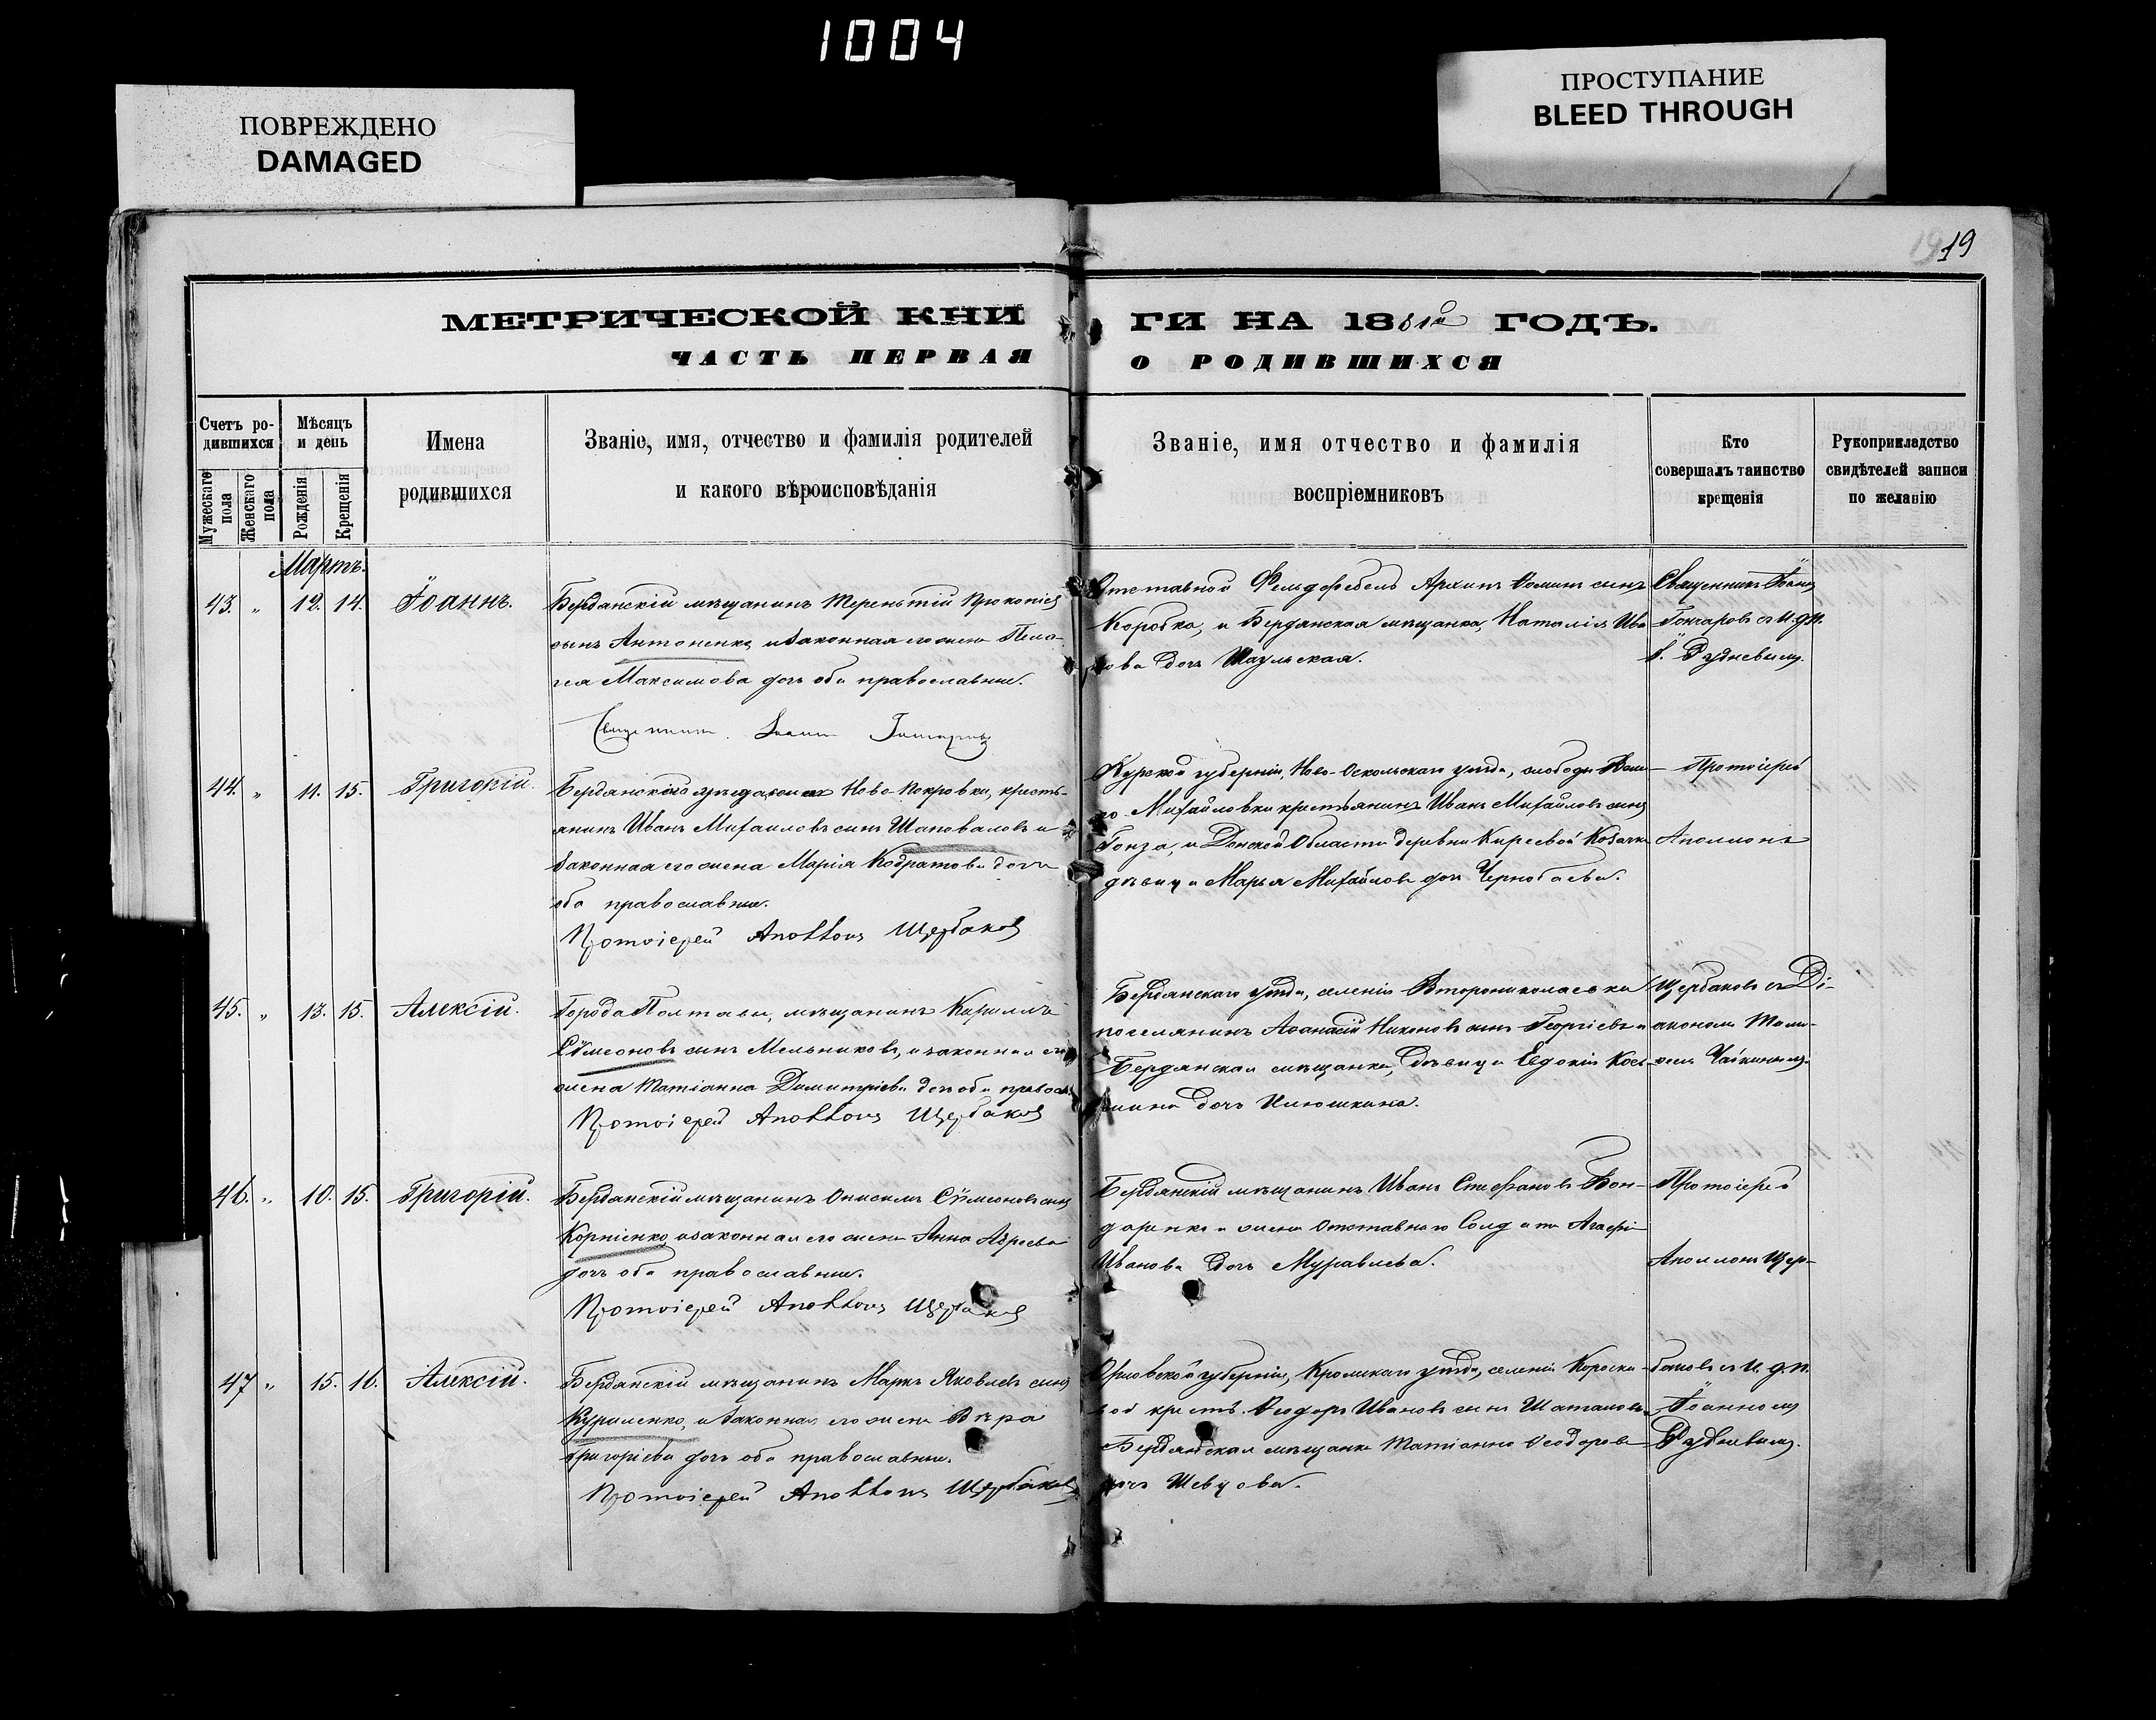 1004
ПОВРЕЖДЕНО
DAMAGED
ПРОСТУПАНИЕ
BLEED THROUGH
19 19
МЕТРИЧЕСКОЙ КНИ
ГИ НА 1881й ГОДЪ.
ЧАСТЬ ПЕРВАЯ
О РОДИВШИХСЯ
Счетъ ро-
дившихся
Мужескаго
пола
Женскаго
пола
Мѣсяцъ
и день
Рожденія
Крещенія
Имена
родившихся
Званіе, имя, отчество и фамилія родителей
и какого вѣроисповѣданія
Званіе, имя отчество и фамилія
воспріемниковъ
Кто
совершалъ таинство
крещенія
Рукоприкладство
свидѣтелей записи
по желанію
Мартъ.
43. " 12. 14. Іоаннъ.
Бердянскій мѣщанинъ Терентій Прокопіев
сынъ Антоненко, и законная его жена Пела-
гея Максимова дочь оба православные.
Священникъ Іоаннъ Гончаровъ
Отставной Фельдфебель Архипъ Ѳоминъ сынъ
Коробка, и Бердянская мѣщанка, Наталія Ива
нова дочь Шаульская.
Священникъ Іоанъ
Гончаровъ съ И.д.п.
І. Рудневымъ.
44. " 11. 15. Григорій.
Бердянскаго уѣзда Ново-Покровки, кресть-
янинъ Иванъ Михаиловъ сынъ Шаповаловъ и
законная его жена Марія Кодратова дочь
оба православные.
Протоіерей Аполлонъ Щербаковъ
Курской губерніи, Ново-Оскольскаго уѣзда, слободы
Михайловки крестьянинъ Иванъ Михайловъ сынъ
Гонза, и Донской Области деревни Киреевой Козачка
дѣвица Марья Михайлова дочь Чернобаева.
Протоіерей
Аполлонъ
45. " 13. 15. Алексій.
Города Полтавы, мѣщанинъ Кириллъ
Сѵмеоновъ сынъ Мельниковъ, и законная его
жена Татіанна Димитріева дочь оба правосл.
Протоіерей Аполлонъ Щербаковъ
Бердянскаго уѣзда, селенія Второниколаевки
поселянинъ Аѳанасій Никоновъ сынъ Георгіевъ и
Бердянская мѣщанка, дѣвица Евдокія Кось-
мина дочь Илюшкина.
Щербаковъ съ Ді-
акономъ
Чайкинымъ.
46. " 10. 15. Григорій.
Бердянскій мѣщанинъ Онисимъ Сѵмеоновъ сынъ
Корніенко, и законная его жена Анна
дочь оба православные.
Протоіерей Аполлонъ Щербаковъ
Бердянскій мѣщанинъ Иванъ Стефановъ Бон-
даренко и жена Отставнаго Солдата Агафія
Иванова дочь Муравьева.
Протоіерей
Аполлонъ Щер-
47 " 15. 16. Алексій.
Бердянскій мѣщанинъ Маркъ Яковлевъ сынъ
Куриленко, и законная его жена Вѣра
Григоріева дочь оба православные.
Протоіерей Аполлонъ Щербаковъ
Орловской губерніи, Кромскаго уѣзда, селенія
крестьян. Ѳеодоръ Ивановъ сынъ Шаталовъ
Бердянская мѣщанка Татіанна Ѳеодорова
дочь Шевцова.
баковъ съ И.д.п.
Іоанномъ
Рудневымъ.